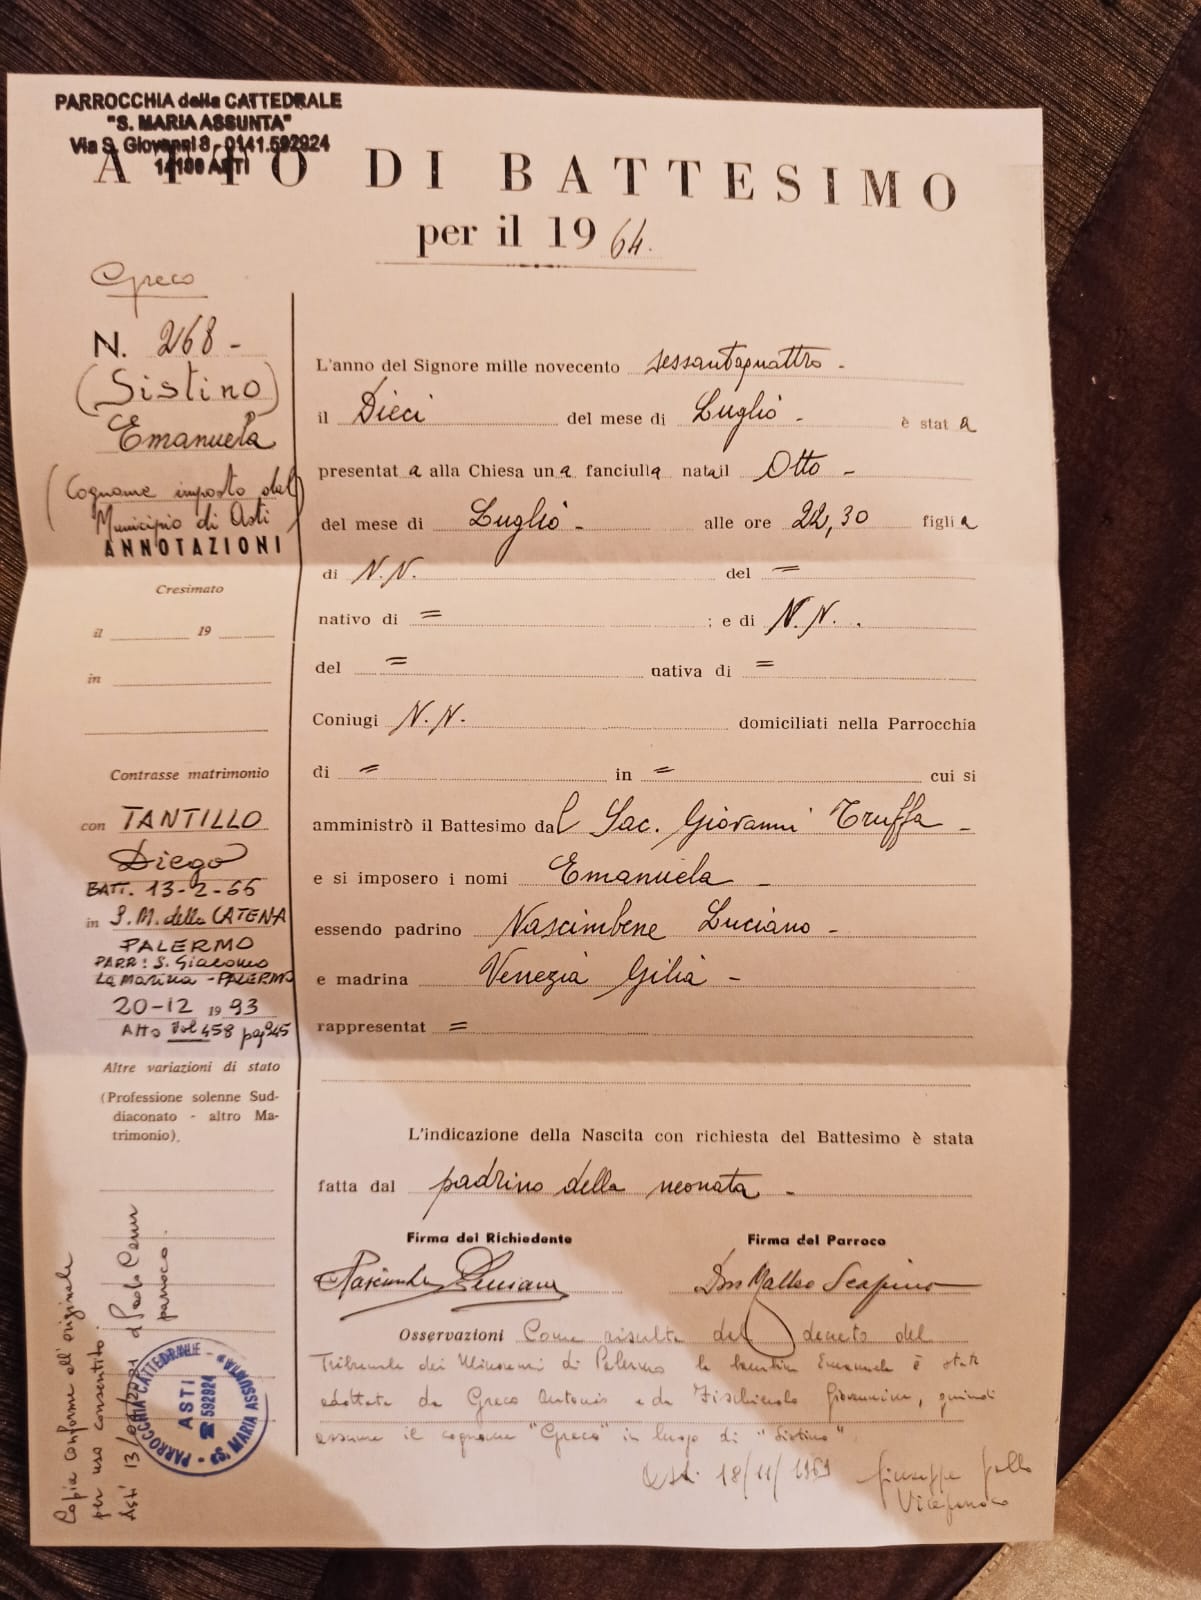 PARROCCHIA della CATTEDRALE
"S. MARIA ASSUNTA"
Via S. Giovanni 8 - 0141.592924
14100 ASTI
ATTO DI BATTESIMO
per il 1964.
Greco
N. 268 -
(Sistino)
Emanuela
(Cognome imposto dal
Municipio di Asti)
ANNOTAZIONI
Cresimato
il 19
in
Contrasse matrimonio
con TANTILLO
Diego
BATT. 13-2-65
in S.M. della CATENA
PALERMO
PARR: S. Giacomo
La Marina - PALERMO
20-12 1993
Atto Vol 458 pag 245
Altre variazioni di stato
(Professione solenne Sud-
diaconato - altro Ma-
trimonio).
L'anno del Signore mille novecento sessantaquattro -
il Dieci del mese di Luglio - è stat a
presentat a alla Chiesa un a fanciulla natail Otto -
del mese di Luglio - alle ore 22,30 figlia
di N.N. del =
nativo di = ; e di N.N. .
del = nativa di =
Coniugi N.N. domiciliati nella Parrocchia
di = in = cui si
amministrò il Battesimo dal Sac. Giovanni Truffa -
e si imposero i nomi Emanuela -
essendo padrino Nascimbene Luciano -
e madrina Venezia Gilia -
rappresentat =
L'indicazione della Nascita con richiesta del Battesimo è stata
fatta dal padrino della neonata -
Firma del Richiedente Firma del Parroco
Nascimbene Luciano Don Matteo Scapino
Osservazioni Come risulta dal decreto del
Tribunale dei Minorenni di Palermo la bambina Emanuela è stata
adottata da Greco Antonio e da Fischicola Giovannina, quindi
assume il cognome "Greco" in luogo di "Sistino"
Asti 18/11/1969 Giuseppe Gallo
Viceparroco
Copia conforme all'originale
per uso consentito
Asti 13 parroco
PARROCCHIA CATTEDRALE - "S. MARIA ASSUNTA"
ASTI
☎ 592924